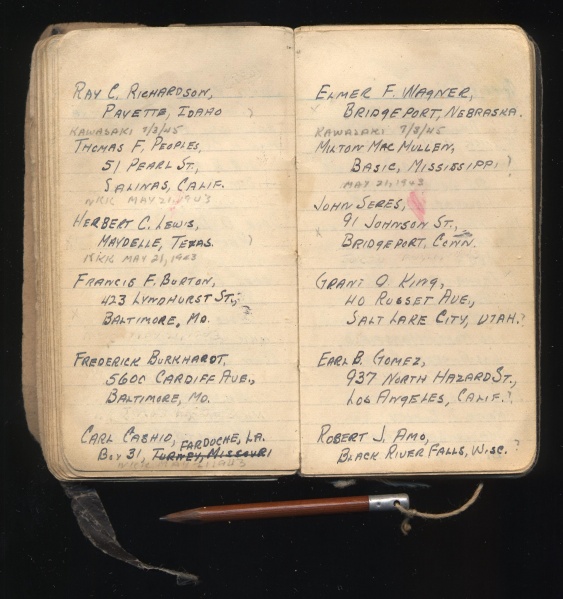 Ray C. Richardson,
Payette, Idaho
Kawasaki 7/3/45
Thomas F. Peoples,
51 Pearl St.,
Salinas, Calif.
NKK May 21, 1943
Herbert C. Lewis,
Maydelle, Texas.
NKK May 21, 1943
Francis F. Burton,
423 Lyndhurst St.,
Baltimore, Md.
Frederick Burkhardt,
5600 Cardiff Ave.,
Baltimore, Md.
Carl Cashio, Fardoche, La.
Box 31, Turney, Missouri
NKK May 21, 1943
Elmer F. Wagner,
Bridgeport, Nebraska.
Kawasaki 7/3/45
Milton MacMullen,
Basic, Mississippi ?
May 21, 1943
John Seres,
91 Johnson St.,
Bridgeport, Conn.
Grant O. King,
40 Russet Ave.,
Salt Lake City, Utah.?
Earl B. Gomez,
937 North Hazard St.,
Los Angeles, Calif.?
Robert J. Amo,
Black River Falls, Wisc. ?